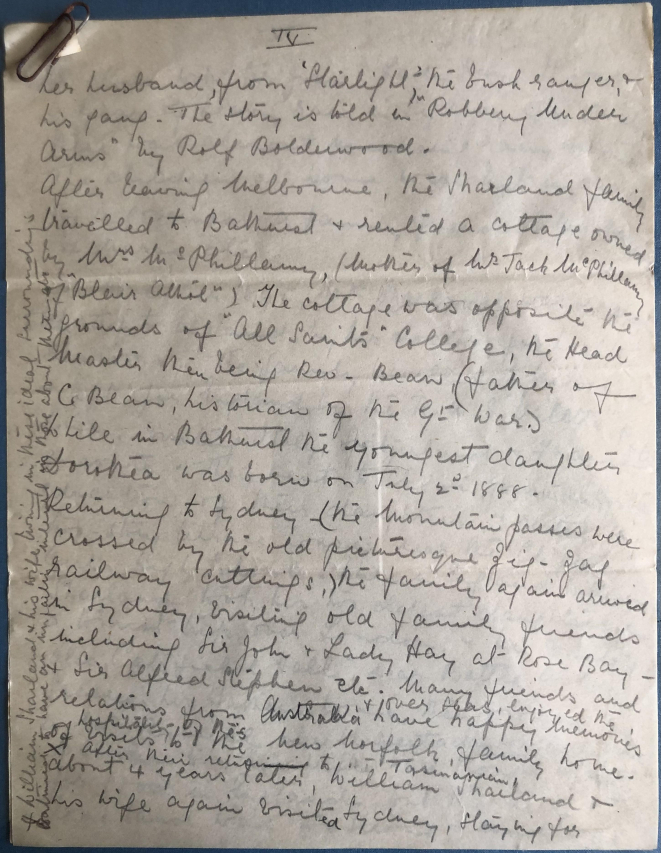 IV
her husband, from "Starlight", the bush ranger, &
his gang - The story is told in "Robbery Under
Arms" by Rolf Bolderwood.
After leaving Melbourne, the Sharland family
travelled to Bathurst & rented a cottage owned
by Mrs McPhillamy, (Mother of Mr Jack McPhillamy
of "Blair Athol") The cottage was opposite the
grounds of "All Saints" College, the Head
Master then being Rev - Bean (father of
C Bean, historian of the Gt War.)
While in Bathurst the youngest daughter
Dorothea was born on July 2d 1888.
Returning to Sydney (the Mountain passes were
crossed by the old picturesque Zig-Zag
railway cuttings,) the family again arrived
in Sydney, visiting old family friends
including Sir John & Lady Hay at Rose Bay -
& Sir Alfred Stephen etc. Many friends and
relations from Australia & over seas, enjoyed the
hospitality of the
have happy memories
of visits to the New Norfolk, family home.
After their returning to Tasmania,
about 4 years later, William Sharland &
his wife again visited Sydney, staying for
& William Sharland & his wife, living in these ideal surroundings